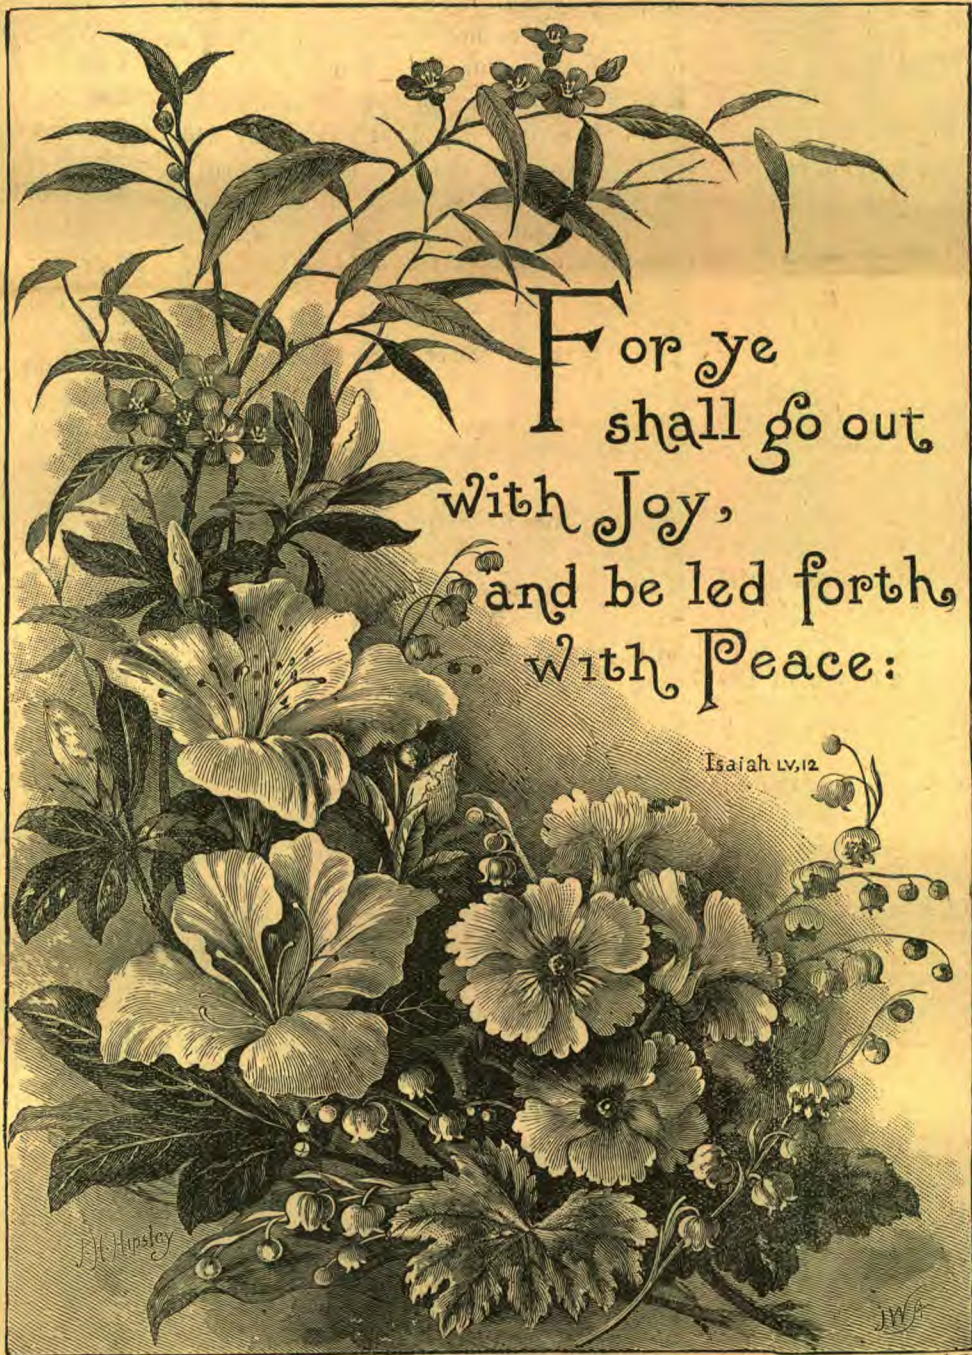 For ye
shall go out
with Joy,
and be led forth
with Peace:
Isaiah LV, 12
J.H. Hipsley
JWA